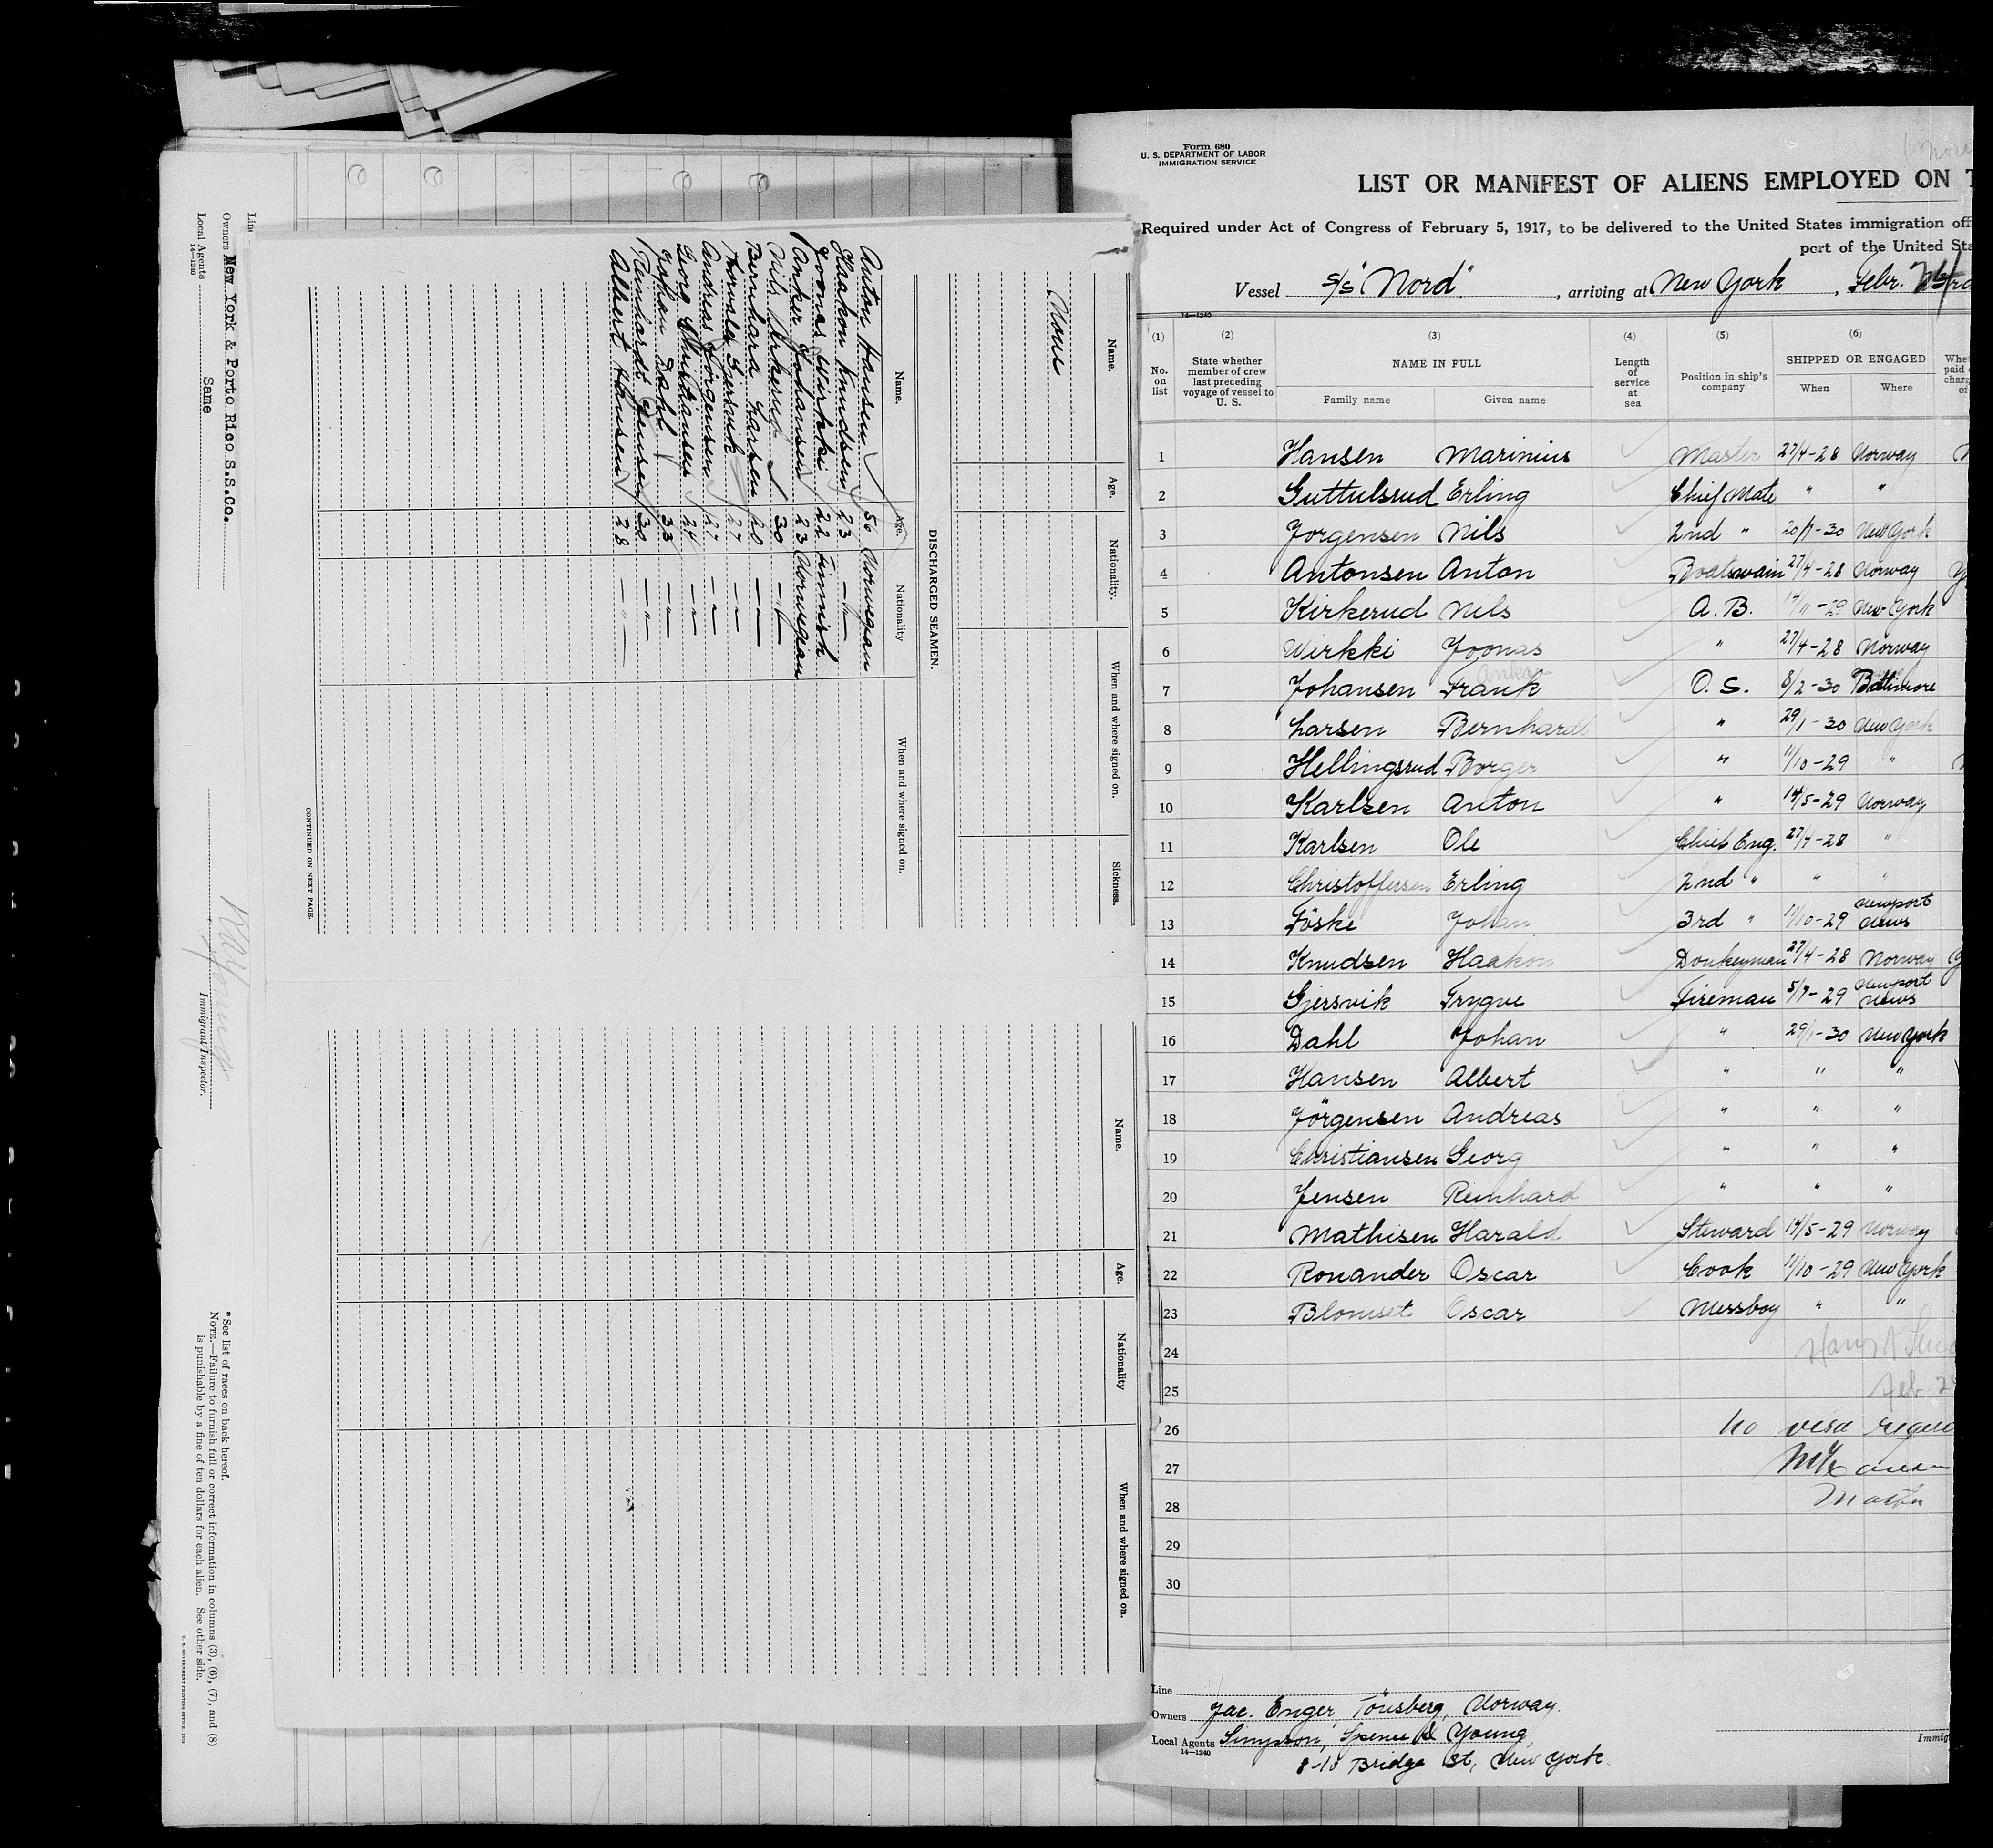 Line
Owners New York & Porto Rico S.S.Co.
Local Agents Same
14—1240
Immigrant Inspector.
* See list of races on back hereof.
NOTE.—Failure to furnish full or correct information in columns (3), (6), (7), and (8)
is punishable by a fine of ten dollars for each alien. See other side.
Name. Age. Nationality. When and where signed on. Sickness.
None
DISCHARGED SEAMEN.
Name. Age. Nationality When and where signed on.
Anton Hansen 56 Norwegian
Haakon Knudsen 23 —"—
Joonas Wirkki 22 Finnish
Anker Johansen 23 Norwegian
Nils Kirkerud 30 —"—
Bernhard Larsen 20 —"—
Gjersvik 27 —"—
Andreas Jörgensen 27 —"—
Georg Christiansen 24 —"—
Johan Dahl 33 —"—
Reinhardt Jensen 30 —"—
Albert Hansen 28 —"—
CONTINUED ON NEXT PAGE.
Name. Age. Nationality When and where signed on.
Form 680
U. S. DEPARTMENT OF LABOR
IMMIGRATION SERVICE
LIST OR MANIFEST OF ALIENS EMPLOYED ON T
Required under Act of Congress of February 5, 1917, to be delivered to the United States immigration off
port of the United Sta
Vessel S/S "Nord", arriving at New York, Febr.
14—1240
(1) (2) (3) (4) (5) (6)
No. on list
State whether member of crew last preceding voyage of vessel to U. S.
NAME IN FULL
Family name Given name
Length of service at sea
Position in ship's company
SHIPPED OR ENGAGED
When Where
1 Hansen Marinius Master 27/4-28 Norway
2 Guttulsrud Erling Chief Mate " "
3 Jorgensen Nils 2nd " 20/7-30 New York
4 Antonsen Anton Boatswain 27/4-28 Norway
5 Kirkerud Nils A. B. 14/11-29 New York
6 Wirkki Joonas " 27/4-28 Norway
Anker
7 Johansen Frank O. S. 8/2-30 Baltimore
8 Larsen Bernhardt " 29/1-30 New York
9 Hellingsrud Borger " 11/10-29 "
10 Karlsen Anton " 14/5-29 Norway
11 Karlsen Ole Chief Eng. 27/4-28 "
12 Christoffersen Erling 2nd " " "
13 Föske Johan 3rd " 11/10-29 Newport News
14 Knudsen Haakon Donkeyman 27/4-28 Norway
15 Gjersvik Trygve Fireman 5/7-29 Newport News
16 Dahl Johan " 29/1-30 New York
17 Hansen Albert " " "
18 Jörgensen Andreas " " "
19 Christiansen Georg " " "
20 Jensen Reinhard " " "
21 Mathisen Harald Steward 14/5-29 Norway
22 Ronander Oscar Cook 11/10-29 New York
23 Blomset Oscar Messboy " "
24
25 Feb. 2
26 No visa reque
27
28 Master
29
30
Line
Owners Jac. Enger, Tönsberg, Norway.
Local Agents Simpson, Spence & Young,
14—1240
8-10 Bridge St, New York
Immig